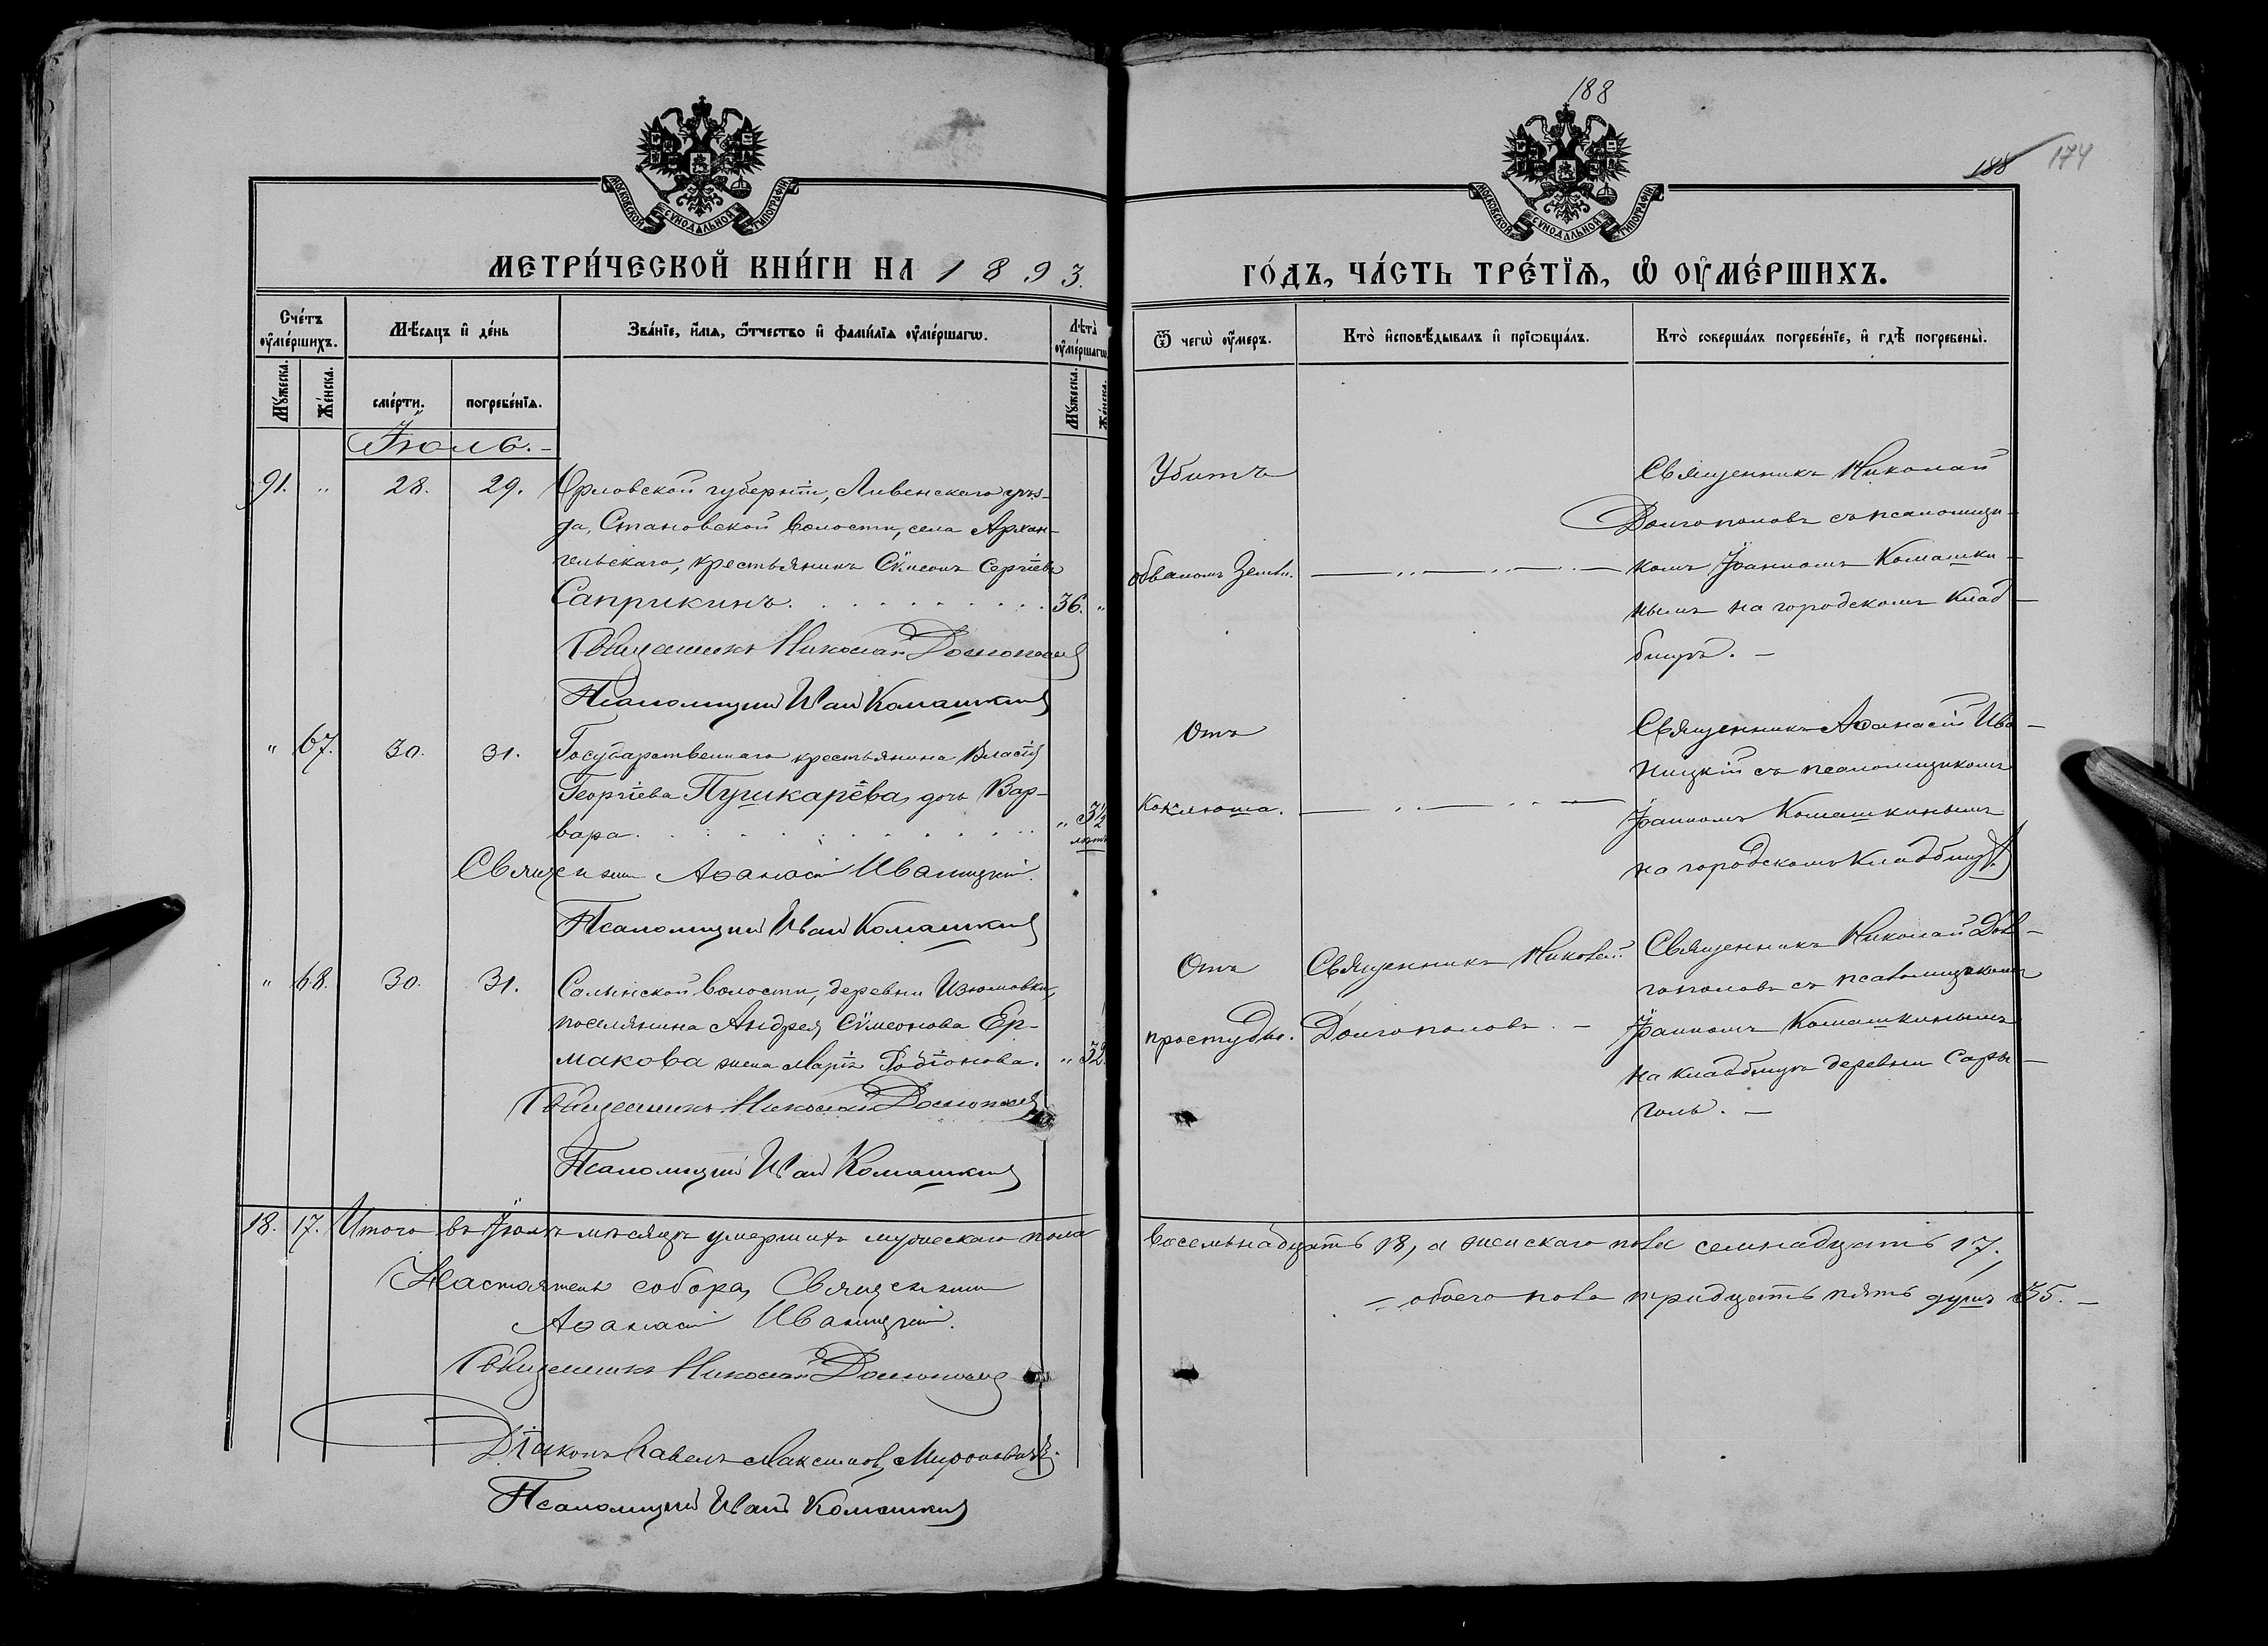 188
188 174
МОСКОВСКОЙ СѴНОДАЛЬНОЙ ТИПОГРАФІИ
МОСКОВСКОЙ СѴНОДАЛЬНОЙ ТИПОГРАФІИ
МЕТРИ́ЧЕСКОЙ КНИ́ГИ НА 1893.
ГО́ДЪ, ЧА́СТЬ ТРЕ́ТЇѦ, Ѡ҆ ОУ҆МЕ́РШИХЪ.
Сче́тъ оу҆ме́ршихъ.
Мѣ́сяцъ и҆ де́нь
Зва́нїе, и҆́мѧ, ѻ҆́тчество и҆ фами́лїѧ оу҆ме́ршагѡ.
Лѣта̀ оу҆ме́ршагѡ.
Мꙋ́жеска. Же́нска.
сме́рти. погребе́нїѧ.
Мꙋ́жеска. Же́нска.
Ѿ чегѡ̀ оу҆́меръ.
Кто̀ и҆сповѣ́дывалъ и҆ прїѡбща́лъ.
Кто̀ соверша́лъ погребе́нїе, и҆ гдѣ̀ погребены̀.
Іюль.
91. " 28. 29. Орловской губерніи, Ливенскаго уѣз-
да, Становской волости, села Архан-
гельскаго, крестьянинъ Сѵмеонъ Сергіевъ
Саприкинъ. 36. "
Священникъ Николай Долгополовъ
Псаломщикъ Иван Комашкинъ
Убитъ
обваломъ земли.
Священникъ Николай
Долгополовъ съ псаломщи-
комъ Іоанномъ Комашки-
нымъ на городскомъ клад-
бищѣ.
" 67. 30. 31. Государственнаго крестьянина Власія
Георгіева Пушкарёва, дочь Вар-
вара. " 3½
лѣтъ
Священник Аѳанасій Иваницкій.
Псаломщикъ Иван Комашкинъ
Отъ
коклюша.
Священникъ Аѳанасій Ива-
ницкій съ псаломщикомъ
Іоанномъ Комашкинымъ
на городскомъ кладбищѣ.
" 68. 30. 31. Салынской волости, деревни Изюмовки,
поселянина Андрея Сѵмеонова Ер-
макова жена Марія Родіонова. " 32.
Священникъ Николай Долгополовъ
Псаломщикъ Иван Комашкинъ
Отъ
простуды.
Священникъ Николай
Долгополовъ.
Священникъ Николай Дол-
гополовъ съ псаломщикомъ
Іоанномъ Комашкинымъ
на кладбищѣ деревни Сары-
голь.
18. 17. Итого въ Іюлѣ мѣсяцѣ умершихъ мужескаго пола
восемьнадцать 18, а женскаго пола семнадцать 17.
обоего пола тридцать пять душъ 35.
Настоятель собора, Священник
Аѳанасій Иваницкій.
Священникъ Николай Долгополовъ
Діаконъ Павелъ Максимов Мироновичъ.
Псаломщикъ Иван Комашкинъ